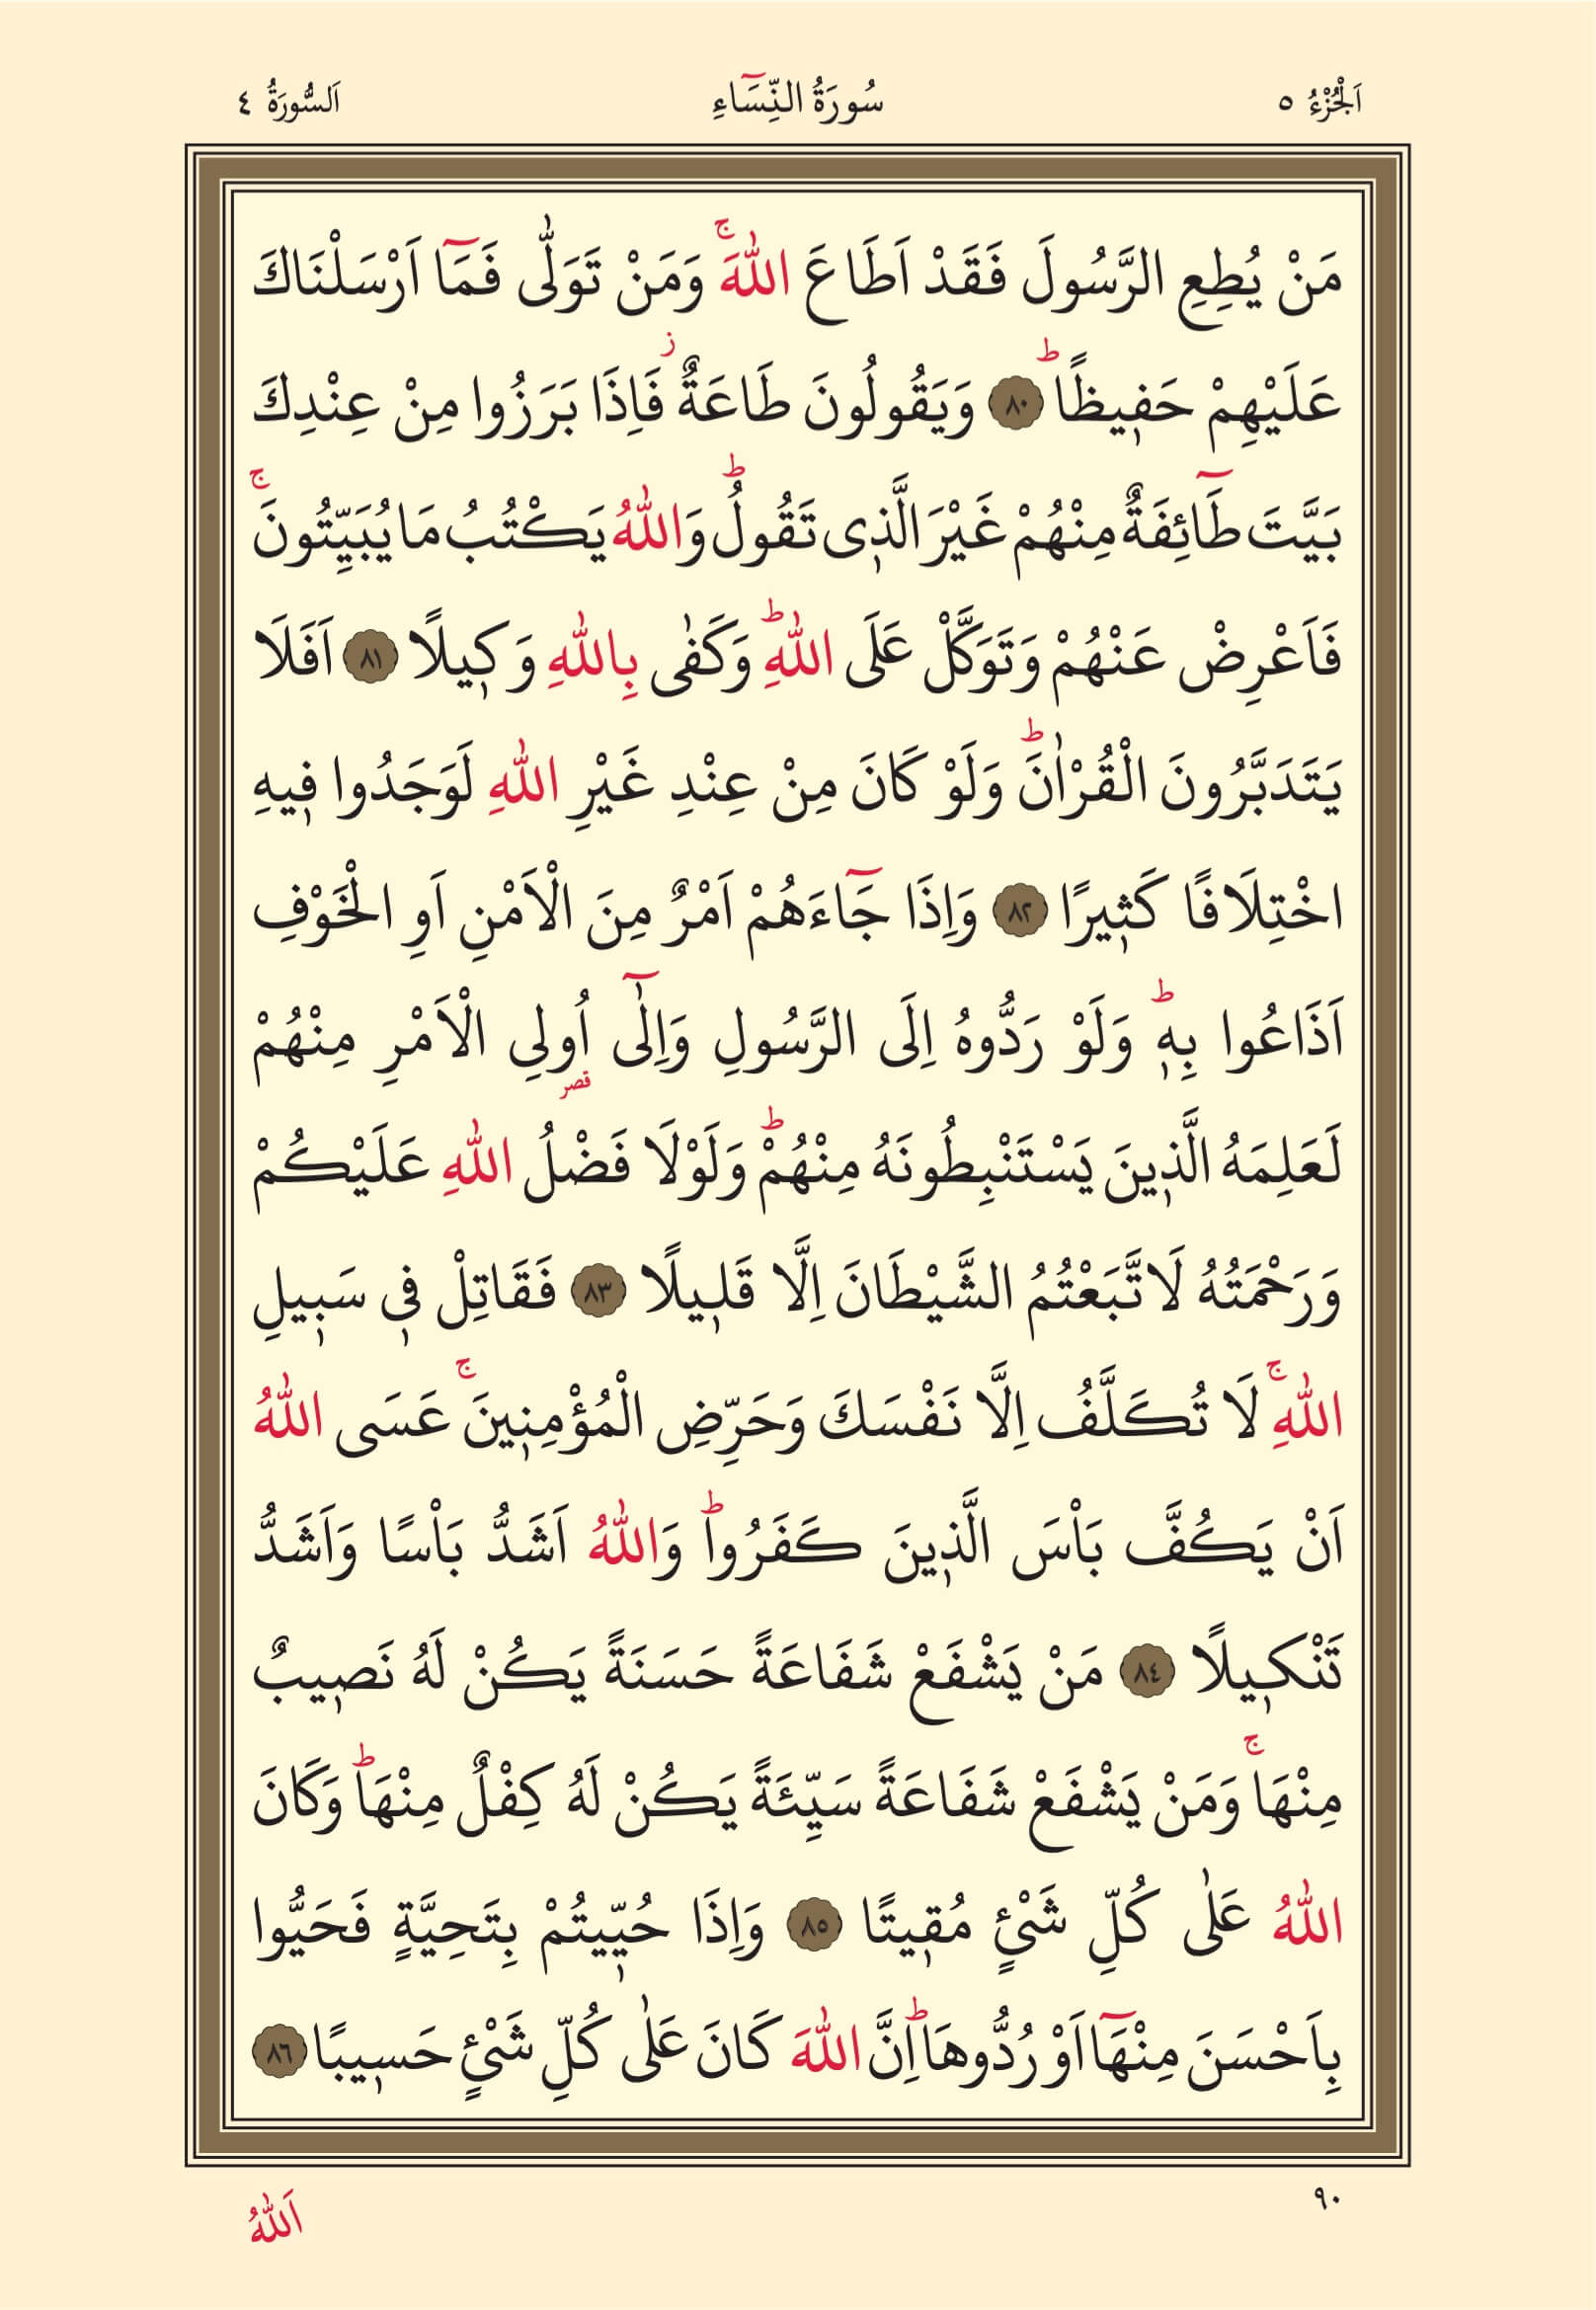 اَلْجُزْءُ ٥ سُورَةُ النِّسَٓاءِ اَلسُّورَةُ ٤
مَنْ يُطِعِ الرَّسُولَ فَقَدْ اَطَاعَ اللّٰهَۚ وَمَنْ تَوَلّٰى فَمَٓا اَرْسَلْنَاكَ
عَلَيْهِمْ حَف۪يظًاۜ ﴿٨٠﴾ وَيَقُولُونَ طَاعَةٌۘ فَاِذَا بَرَزُوا مِنْ عِنْدِكَ
بَيَّتَ طَٓائِفَةٌ مِنْهُمْ غَيْرَ الَّذ۪ى تَقُولُۜ وَاللّٰهُ يَكْتُبُ مَا يُبَيِّتُونَۚ
فَاَعْرِضْ عَنْهُمْ وَتَوَكَّلْ عَلَى اللّٰهِۜ وَكَفٰى بِاللّٰهِ وَك۪يلًا ﴿٨١﴾ اَفَلَا
يَتَدَبَّرُونَ الْقُرْاٰنَۜ وَلَوْ كَانَ مِنْ عِنْدِ غَيْرِ اللّٰهِ لَوَجَدُوا ف۪يهِ
اخْتِلَافًا كَث۪يرًا ﴿٨٢﴾ وَاِذَا جَٓاءَهُمْ اَمْرٌ مِنَ الْاَمْنِ اَوِ الْخَوْفِ
اَذَاعُوا بِه۪ۜ وَلَوْ رَدُّوهُ اِلَى الرَّسُولِ وَاِلٰٓى اُولِى الْاَمْرِ مِنْهُمْ
قصر
لَعَلِمَهُ الَّذ۪ينَ يَسْتَنْبِطُونَهُ مِنْهُمْۜ وَلَوْلَا فَضْلُ اللّٰهِ عَلَيْكُمْ
وَرَحْمَتُهُ لَاتَّبَعْتُمُ الشَّيْطَانَ اِلَّا قَل۪يلًا ﴿٨٣﴾ فَقَاتِلْ ف۪ى سَب۪يلِ
اللّٰهِۚ لَا تُكَلَّفُ اِلَّا نَفْسَكَ وَحَرِّضِ الْمُؤْمِن۪ينَۚ عَسَى اللّٰهُ
اَنْ يَكُفَّ بَاْسَ الَّذ۪ينَ كَفَرُواۜ وَاللّٰهُ اَشَدُّ بَاْسًا وَاَشَدُّ
تَنْك۪يلًا ﴿٨٤﴾ مَنْ يَشْفَعْ شَفَاعَةً حَسَنَةً يَكُنْ لَهُ نَص۪يبٌ
مِنْهَاۚ وَمَنْ يَشْفَعْ شَفَاعَةً سَيِّئَةً يَكُنْ لَهُ كِفْلٌ مِنْهَاۜ وَكَانَ
اللّٰهُ عَلٰى كُلِّ شَىْءٍ مُق۪يتًا ﴿٨٥﴾ وَاِذَا حُيّ۪يتُمْ بِتَحِيَّةٍ فَحَيُّوا
بِاَحْسَنَ مِنْهَٓا اَوْ رُدُّوهَاۜ اِنَّ اللّٰهَ كَانَ عَلٰى كُلِّ شَىْءٍ حَس۪يبًا ﴿٨٦﴾
٩٠
اَللّٰهُ